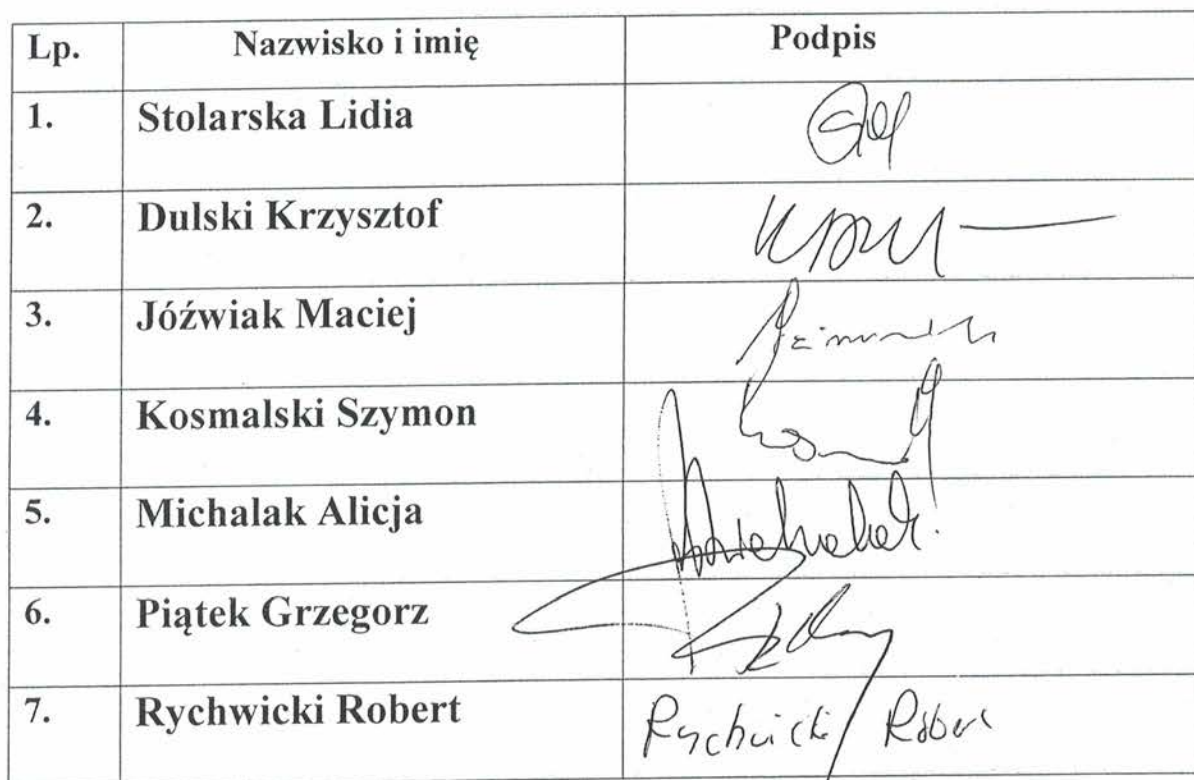 Lp. Nazwisko i imię Podpis
1. Stolarska Lidia
2. Dulski Krzysztof
3. Jóźwiak Maciej
4. Kosmalski Szymon
5. Michalak Alicja
6. Piątek Grzegorz
7. Rychwicki Robert Rychwicki Robert